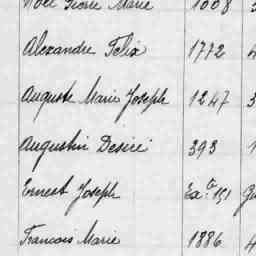 Noël Pierre Marie 1008
Alexandre Felix 1772 4
Auguste Marie Joseph 1247 3
Augustin Desiré 393 1
Ernest Joseph Ex.te 151
François Marie 1886 4